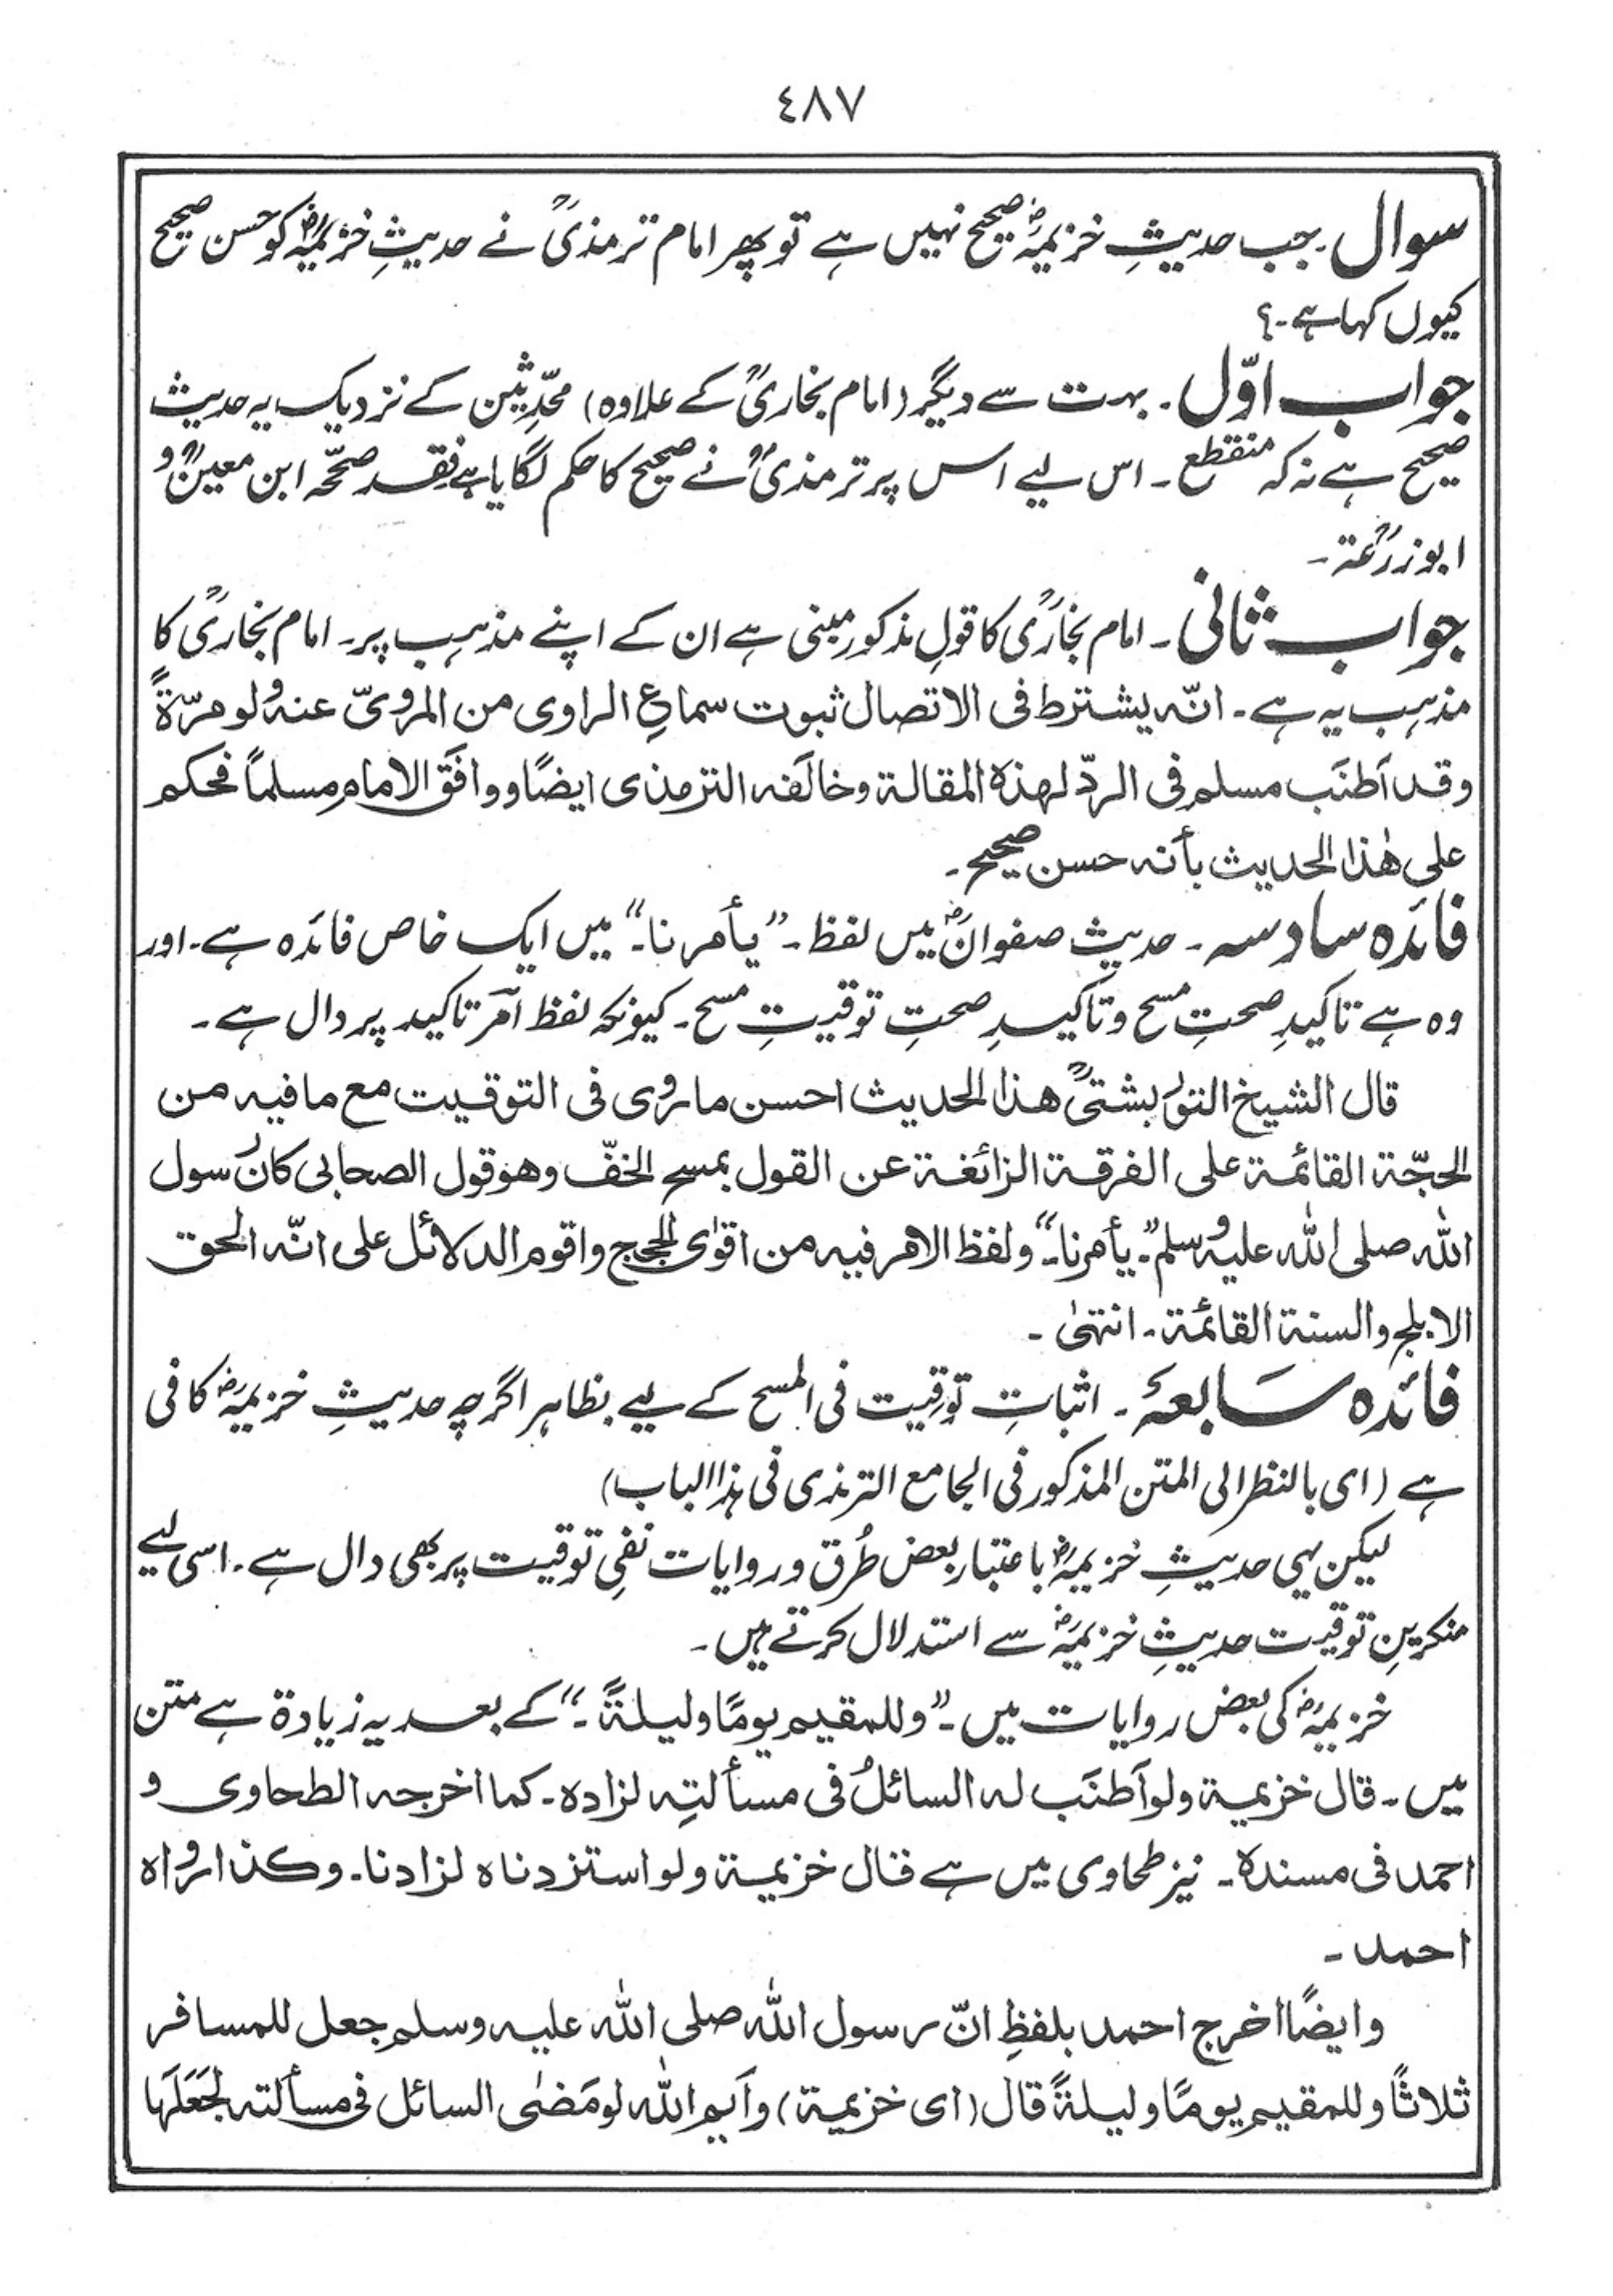 ٤٨٧
سوال ۔ جب حدیثِ خزیمہؓ صحیح نہیں ہے تو پھر امام ترمذیؒ نے حدیثِ خزیمہؓ کو حسن صحیح
کیوں کہا ہے ۔؟
جواب اوّل ۔ بہت سے دیگر (امام بخاریؒ کے علاوہ) محدّثین کے نزدیک یہ حدیث
صحیح ہے نہ کہ منقطع ۔ اس لیے اس پر ترمذیؒ نے صحیح کا حکم لگایا ہے فقد صحّحہ ابن معینؒ و
ابوزرعۃؒ ۔
جواب ثانی ۔ امام بخاریؒ کا قولِ مذکور مبنی ہے ان کے اپنے مذہب پر ۔ امام بخاریؒ کا
مذہب یہ ہے ۔ انّہ یشترط فی الاتصال ثبوت سماعِ الراوی من المرویّ عنہ ولو مرّۃً
وقد اَطنَب مسلم فی الردّ لھذہ المقالۃ وخالَفہ الترمذی ایضًا ووافَق الامام مسلماً فحکم
علی ھٰذا الحدیث بأنہ حسن صحیح ۔
فائدہ سادسہ ۔ حدیث صفوانؓ میں لفظ ۔ ”یأمرنا ۔“ میں ایک خاص فائدہ ہے ۔ اور
وہ ہے تاکیدِ صحتِ مسح و تاکیدِ صحتِ توقیتِ مسح ۔ کیونکہ لفظ اَمَر تاکید پر دال ہے ۔
قال الشیخ التوربشتیؒ ھذا الحدیث احسن ماروی فی التوقیت مع مافیہ من
الحجّۃ القائمۃ علی الفرقۃ الزائغۃ عن القول بمسح الخفّ وھو قول الصحابی کان رسول
اللہ صلی اللہ علیہ وسلم ”۔ یأمرنا ۔“ ولفظ الامر فیہ من اقوٰی الحجج واقوم الدلائل علی انّہ الحق
الابلج والسنۃ القائمۃ ۔ انتہٰی ۔
فائدہ سابعہ ۔ اثباتِ توقیت فی المسح کے لیے بظاہر اگرچہ حدیثِ خزیمہؓ کافی
ہے (ای بالنظر الی المتن المذکور فی الجامع الترمذی فی ہذا الباب)
لیکن یہی حدیثِ خزیمہؓ باعتبار بعض طُرق و روایات نفیِ توقیت پر بھی دال ہے ۔ اسی لیے
منکرینِ توقیت حدیثِ خزیمہؓ سے استدلال کرتے ہیں ۔
خزیمہؓ کی بعض روایات میں ۔ ”وللمقیم یومًا ولیلۃً ۔“ کے بعد یہ زیادۃ ہے متن
میں ۔ قال خزیمۃ ولو اَطنَب لہ السائلُ فی مسألتِہ لزادہ ۔ کما اخرجہ الطحاوی و
احمد فی مسندہ ۔ نیز طحاوی میں ہے قال خزیمۃ ولو استزدناہ لزادنا ۔ وکذا رواہ
احمد ۔
وایضًا اخرج احمد بلفظِ انّ رسول اللہ صلی اللہ علیہ وسلم جعل للمسافر
ثلاثًا وللمقیم یومًا ولیلۃً قال (ای خزیمۃ) واَیم اللہ لو مَضٰی السائل فی مسألتہ لجَعَلَھا